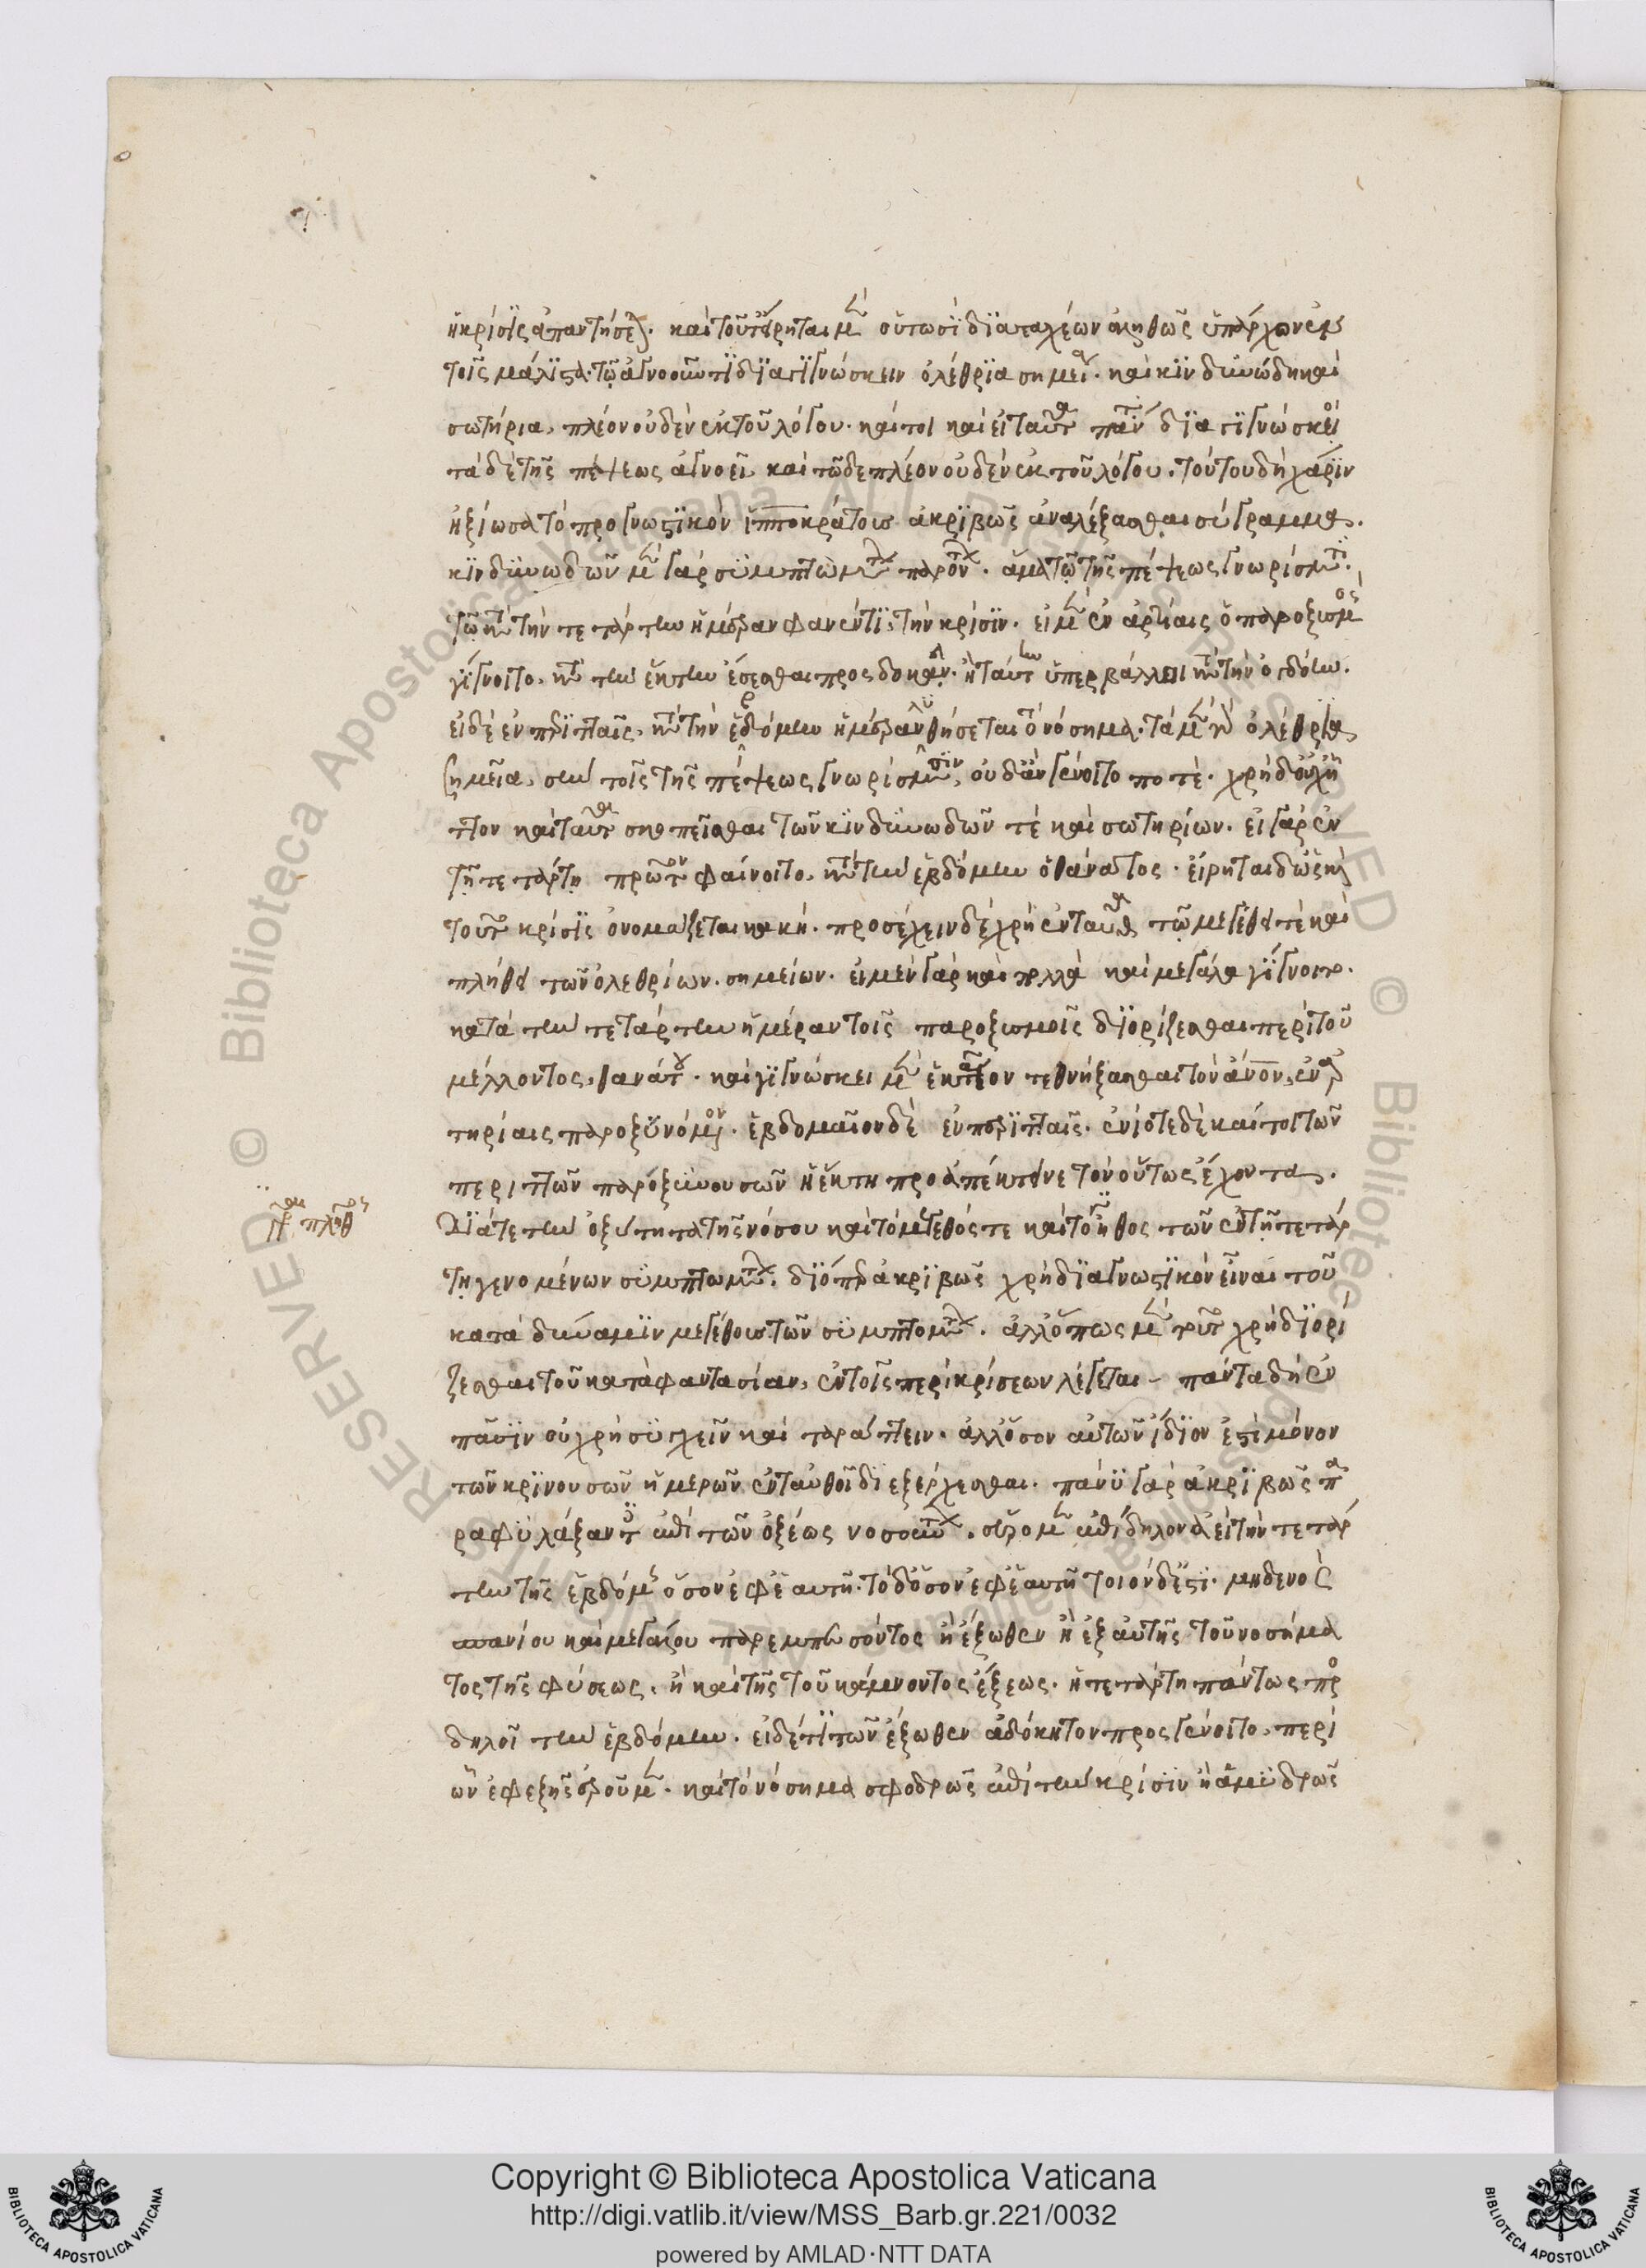 ἡ κρίσις ἀπαντήσει. καὶ τοῦτ' εἴρηται μὲν οὕτωσὶ διαταχέων ἀληθῶς ὑπάρχον ἐν
τοῖς μάλιστα. τῷ ἀγνοοῦντι διαγιγνώσκειν ὀλέθρια σημεῖα. καὶ κινδυνώδη καὶ
σωτήρια, πλέον οὐδὲν ἐκ τοῦ λόγου. καίτοι καὶ εἰ ταῦτα πάντα διαγιγνώσκοι
τὰ δὲ τῆς πέψεως ἀγνοεῖ, καὶ τῷδε πλέον οὐδὲν ἐκ τοῦ λόγου. τούτου δὴ χάριν
ἠξίωσα τὸ προγνωστικὸν ἱπποκράτους ἀκριβῶς ἀναλέξασθαι σύγγραμμα.
κινδυνωδῶν μὲν γὰρ συμπτωμάτων παρόντων. ἅμα τῷ τῆς πέψεως γνωρίσματι.
τῷ κατὰ τὴν τετάρτην ἡμέραν φανέντι, τὴν κρίσιν. εἰ μὲν ἐν ἀρτίαις ὁ παροξυσμὸς
γίγνοιτο, κατὰ τὴν ἕκτην ἔσεσθαι προσδοκᾶν. ἢ ταύτην ὑπερβάλλει κατὰ τὴν ὀγδόην.
εἰ δὲ ἐν περιτταῖς, κατὰ τὴν ἑβδόμην ἡμέραν λυθήσεται τὸ νόσημα. τὰ μὲν οὖν ὀλέθρια
σημεῖα, σὺν τοῖς τῆς πέψεως γνωρίσμασιν, οὐδ' ἂν γένοιτό ποτε. χρὴ δ' οὐχ ἧτ
τον καὶ ταῦτα σκοπεῖσθαι τῶν κινδυνωδῶν τε καὶ σωτηρίων. εἰ γὰρ ἐν
τῇ τετάρτῃ πρῶτον φαίνοιτο, κατὰ τὴν ἑβδόμην ὁ θάνατος. εἴρηται δ' ὡς καὶ
τοῦτο κρίσις ὀνομάζεται κακή. προσέχειν δὲ χρὴ ἐνταῦθα τῷ μεγέθει τε καὶ
πλήθει τῶν ὀλεθρίων. σημείων. εἰ μὲν γὰρ καὶ πολλὰ καὶ μεγάλα γίγνοιτο.
κατὰ τὴν τετάρτην ἡμέραν τοῖς παροξυσμοῖς διορίζεσθαι περὶ τοῦ
μέλλοντος, θανάτου. καὶ γιγνώσκει μὲν ἑκταῖον τεθνήξασθαι τὸν ἄνον, ἐν ἀρ
τηρίαις παροξυνόμενον. ἑβδομαῖον δὲ ἐν περιτταῖς. ἐνίοτε δὲ καίτοι τῶν
περιττῶν παροξυνουσῶν ἡ ἕκτη προαπέκτεινε τὸν οὕτως ἔχοντα.
Διά τε τὴν ὀξύτητα τῆς νόσου καὶ τὸ μέγεθός τε καὶ τὸ πλῆθος τῶν ἐν τῇ τετάρ
τῃ γενομένων συμπτωμάτων. διόπερ ἀκριβῶς χρὴ διαγνωστικὸν εἶναι τοῦ
κατὰ δύναμιν μεγέθους τῶν συμπτομάτων. ἀλλ' ὅπως μὲν τοῦτο χρὴ διορί
ζεσθαι τοῦ κατὰ φαντασίαν, ἐν τοῖς περὶ κρίσεων λέγεται – πάντα δὴ ἐν
πᾶσιν οὐ χρὴ συγχεῖν καὶ ταράττειν. ἀλλ' ὅσον αὐτῶν ἴδιόν ἐστι μόνον
τῶν κρινουσῶν ἡμερῶν ἐνταυθοῖ διεξέρχεσθαι. πάνυ γὰρ ἀκριβῶς πα
ραφυλάξαντι ἐπὶ τῶν ὀξέως νοσούντων. εὕρομεν ἐπίδηλον ἀεὶ τὴν τετάρ
την τῆς ἑβδόμης ὅσον ἐφ' ἑαυτῇ. τὸ δ' ὅσον ἐφ' ἑαυτῇ τοιόνδ' ἐστί. μηδενὸς
σπανίου καὶ μεγάλου παρεμπεσόντος ἢ ἔξωθεν ἢ ἐξ αὐτῆς τοῦ νοσήμα
τος τῆς φύσεως. ἢ καὶ τῆς τοῦ κάμνοντος ἕξεως. ἡ τετάρτη πάντως προ
δηλοῖ τὴν ἑβδόμην. εἰ δέ τι τῶν ἔξωθεν ἀδόκητον προσγένοιτο, περὶ
ὧν ἐφεξῆς ἐροῦμεν. καὶ τὸ νόσημα σφοδρῶς ἐπὶ τὴν κρίσιν ἢ ἀμυδρῶς